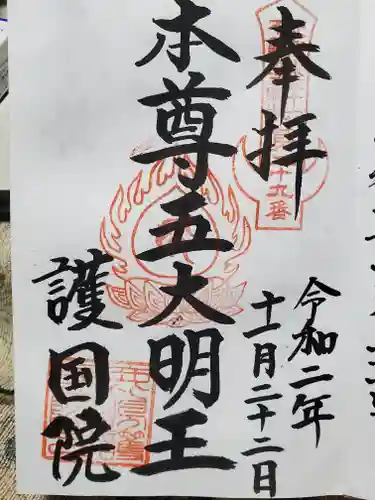 奉拝
十九番
令和二年
十一月二十二日
本尊五大明王
護国院